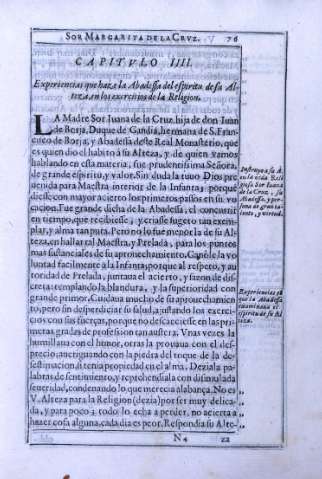 SOR MARGARITA DE LA CRVZ. 76
CAPITVLO IIII.
Experiencias que hazia la Abadessa del espiritu de su Al-
teza, en los exercicios de la Religion.
LA Madre Sor Iuana de la Cruz, hija de don Iuan
de Borja, Duque de Gandia, hermana de S. Francis-
co de Borja, y Abadessa deste Real Monasterio, que
es quien dio el habito a su Alteza, y de quien vamos
hablando en esta materia, fue prudentissima Señora,
de grande espiritu, y valor. Sin duda la tuuo Dios pre-
uenida para Maestra interior de la Infanta; porque
diesse con mayor acierto los primeros passos en su vo-
cacion. Fue grande dicha de la Abadessa, el concurrir
en tiempo, que recibiesse, y criasse sugeto tan exem-
plar, y alma tan pura. Pero no lo fue menor la de su Al-
teza, en hallar tal Maestra, y Prelada, para los puntos
mas sustanciales de su aprouechamiento. Captole la vo-
luntad facilmente a la Infanta; porque al respeto, y au-
toridad de Prelada, juntaua el acierto, y razon de dis-
creta: templando la blandura, y la superioridad con
grande primor. Cuidaua mucho de su aprouechamien-
to, pero sin desperdiciar su salud, ajustando los exerci-
cios con sus fuerças, porque no descaeciesse en las pri-
meras gradas de profession tan austera. Vnas vezes la
humillaua con el humor, otras la prouaua con el des-
precio, aueriguando con la piedra del toque de la de-
sestimacion, si tenia propiedad en el alma. Deziala pa-
labras de sentimiento, y reprehensiala con dissimulada
seueridad, condenando lo que merecia alabança. No es
V. Alteza para la Religion (dezia) por ser muy delica-
da, y para poco; todo lo echa a perder, no acierta a
hazer cosa alguna, cada dia es peor. Respondia su Alte-
N 4 za
Instruyo a su A.
en la vida Reli-
giosa Sor Iuana
de la Cruz, su
Abadessa, y per-
sona de gran ta-
lento, y virtud.
Experiencias cõ
que la Abadessa
examinaua el
espiritu de su Al-
teza.